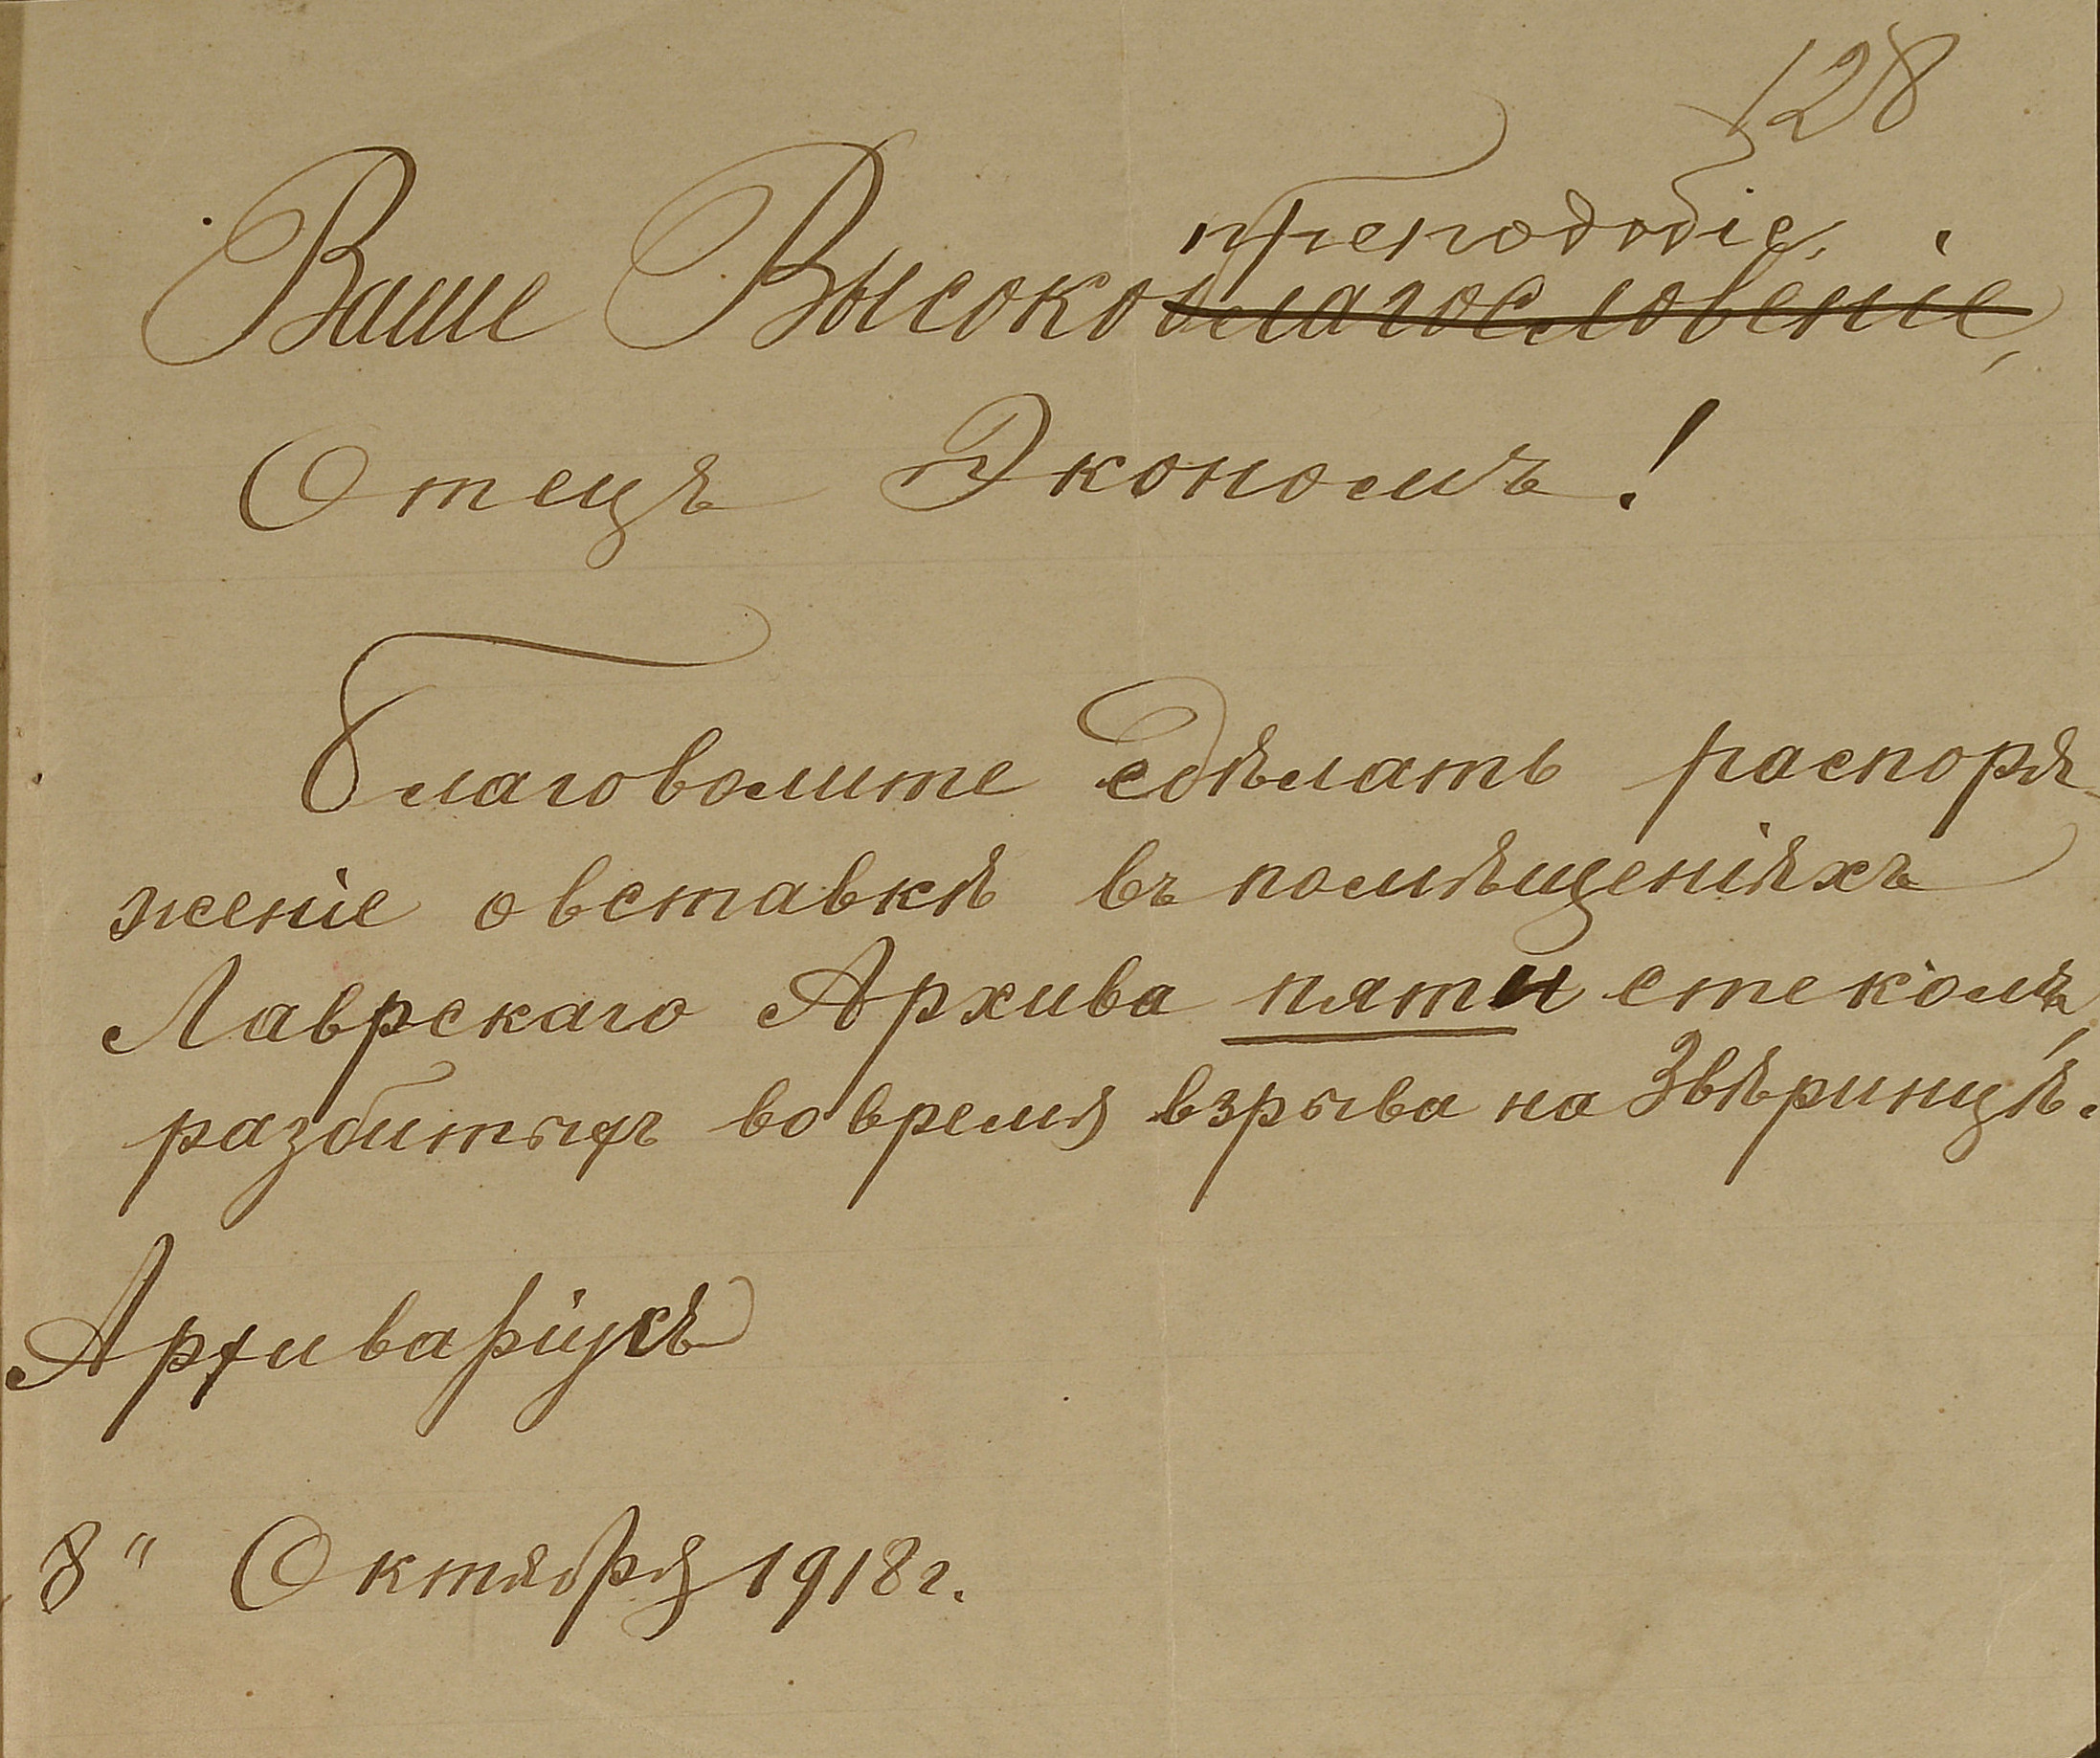 128
преподобіе,
Ваше Высокоблагословеніе,
Отецъ Экономъ!
Благоволите сдѣлать распоря-
женіе о вставкѣ въ помѣщеніяхъ
Лаврскаго Архива пяти стеколъ,
разбитыхъ во время взрыва на Звѣринцѣ.
Архиваріусъ
8" Октября 1918 г.